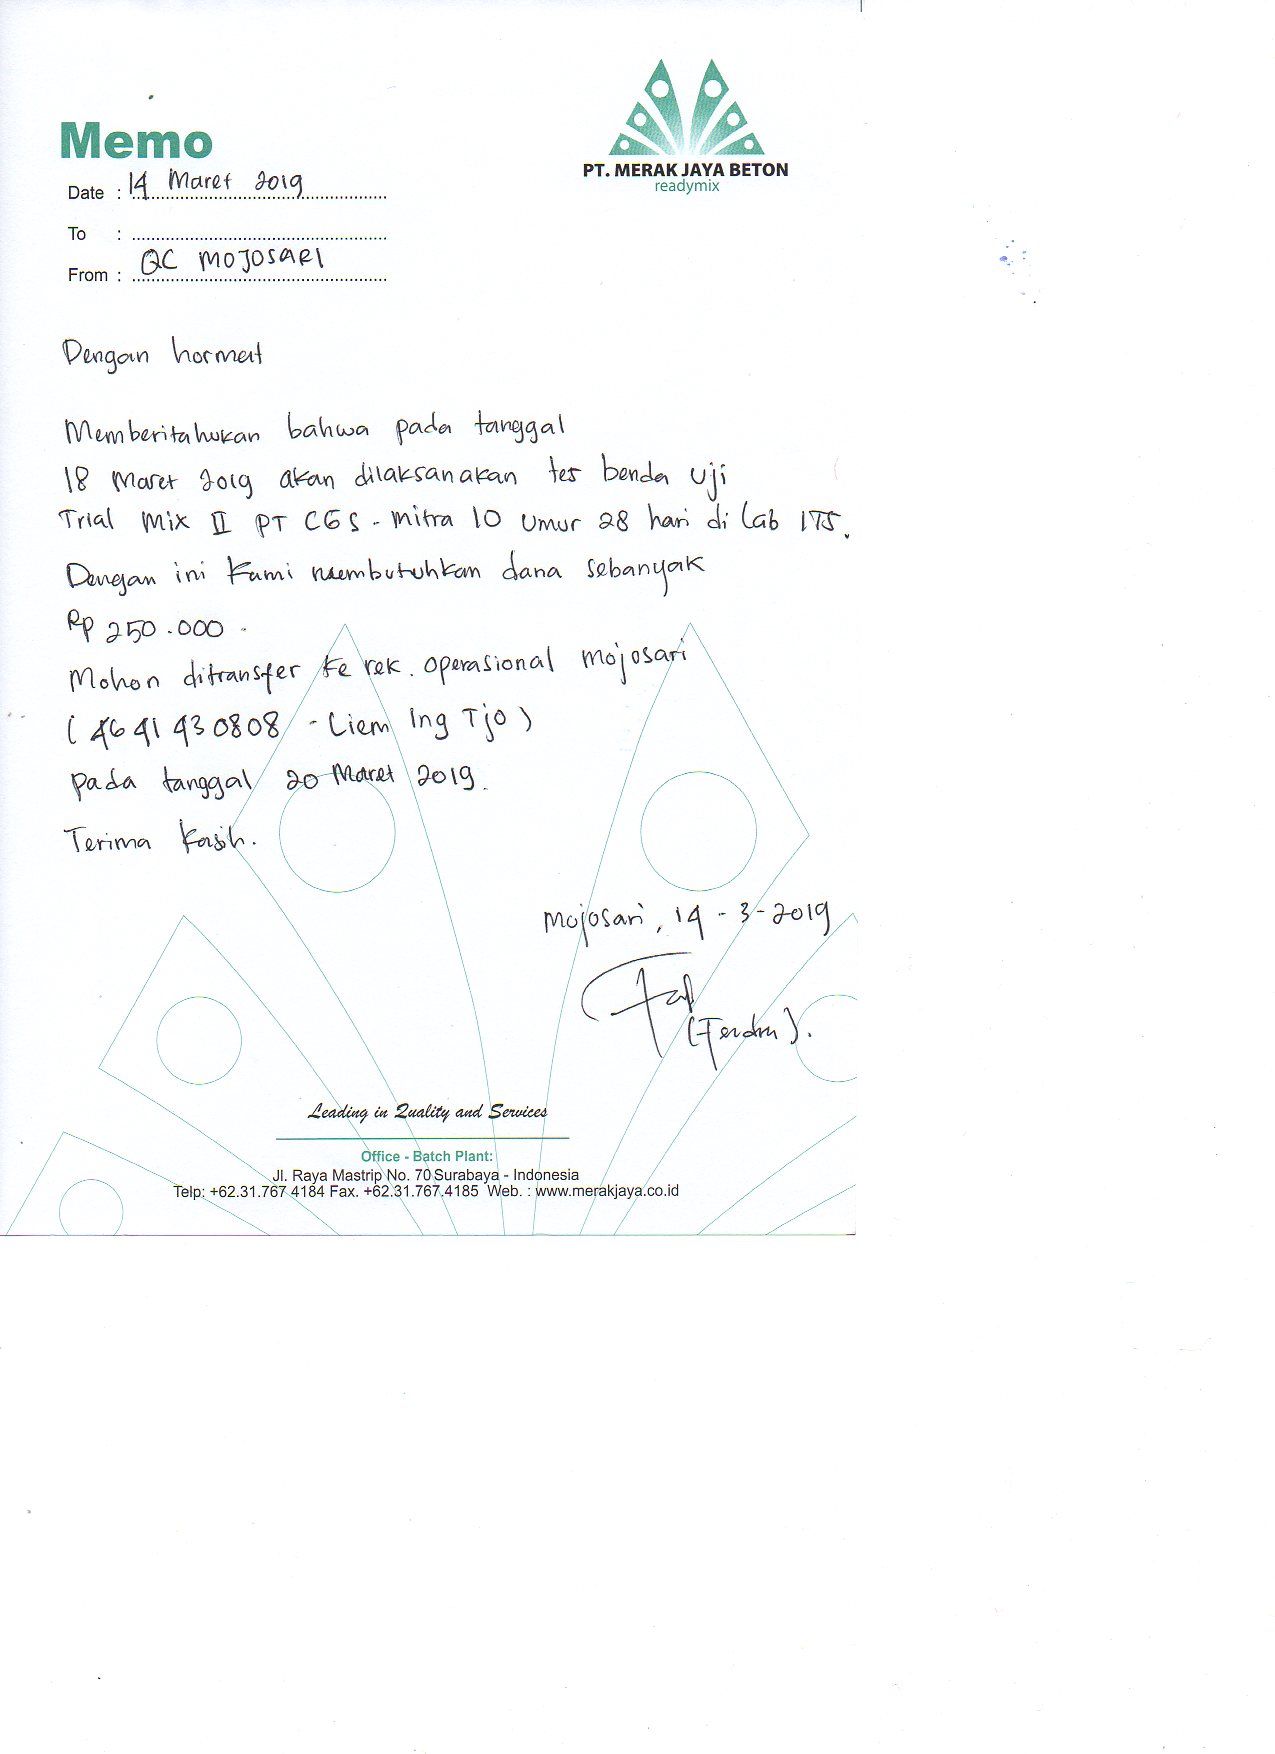 Memo
PT. MERAK JAYA BETON
readymix
Date : 14 Maret 2019
To :
From : QC MOJOSARI
Dengan hormat
Memberitahukan bahwa pada tanggal
18 Maret 2019 akan dilaksanakan tes benda uji
Trial Mix II PT CGS - Mitra 10 Umur 28 hari di Lab ITS.
Dengan ini Kami membutuhkan dana sebanyak
Rp 250.000 -
Mohon ditransfer ke rek. operasional mojosari
( 4641430808 - Liem Ing Tjo )
pada tanggal 20 Maret 2019.
Terima Kasih.
Mojosari, 14 - 3 - 2019
Leading in Quality and Services
Office - Batch Plant:
Jl. Raya Mastrip No. 70 Surabaya - Indonesia
Telp: +62.31.767 4184 Fax. +62.31.767.4185 Web. : www.merakjaya.co.id